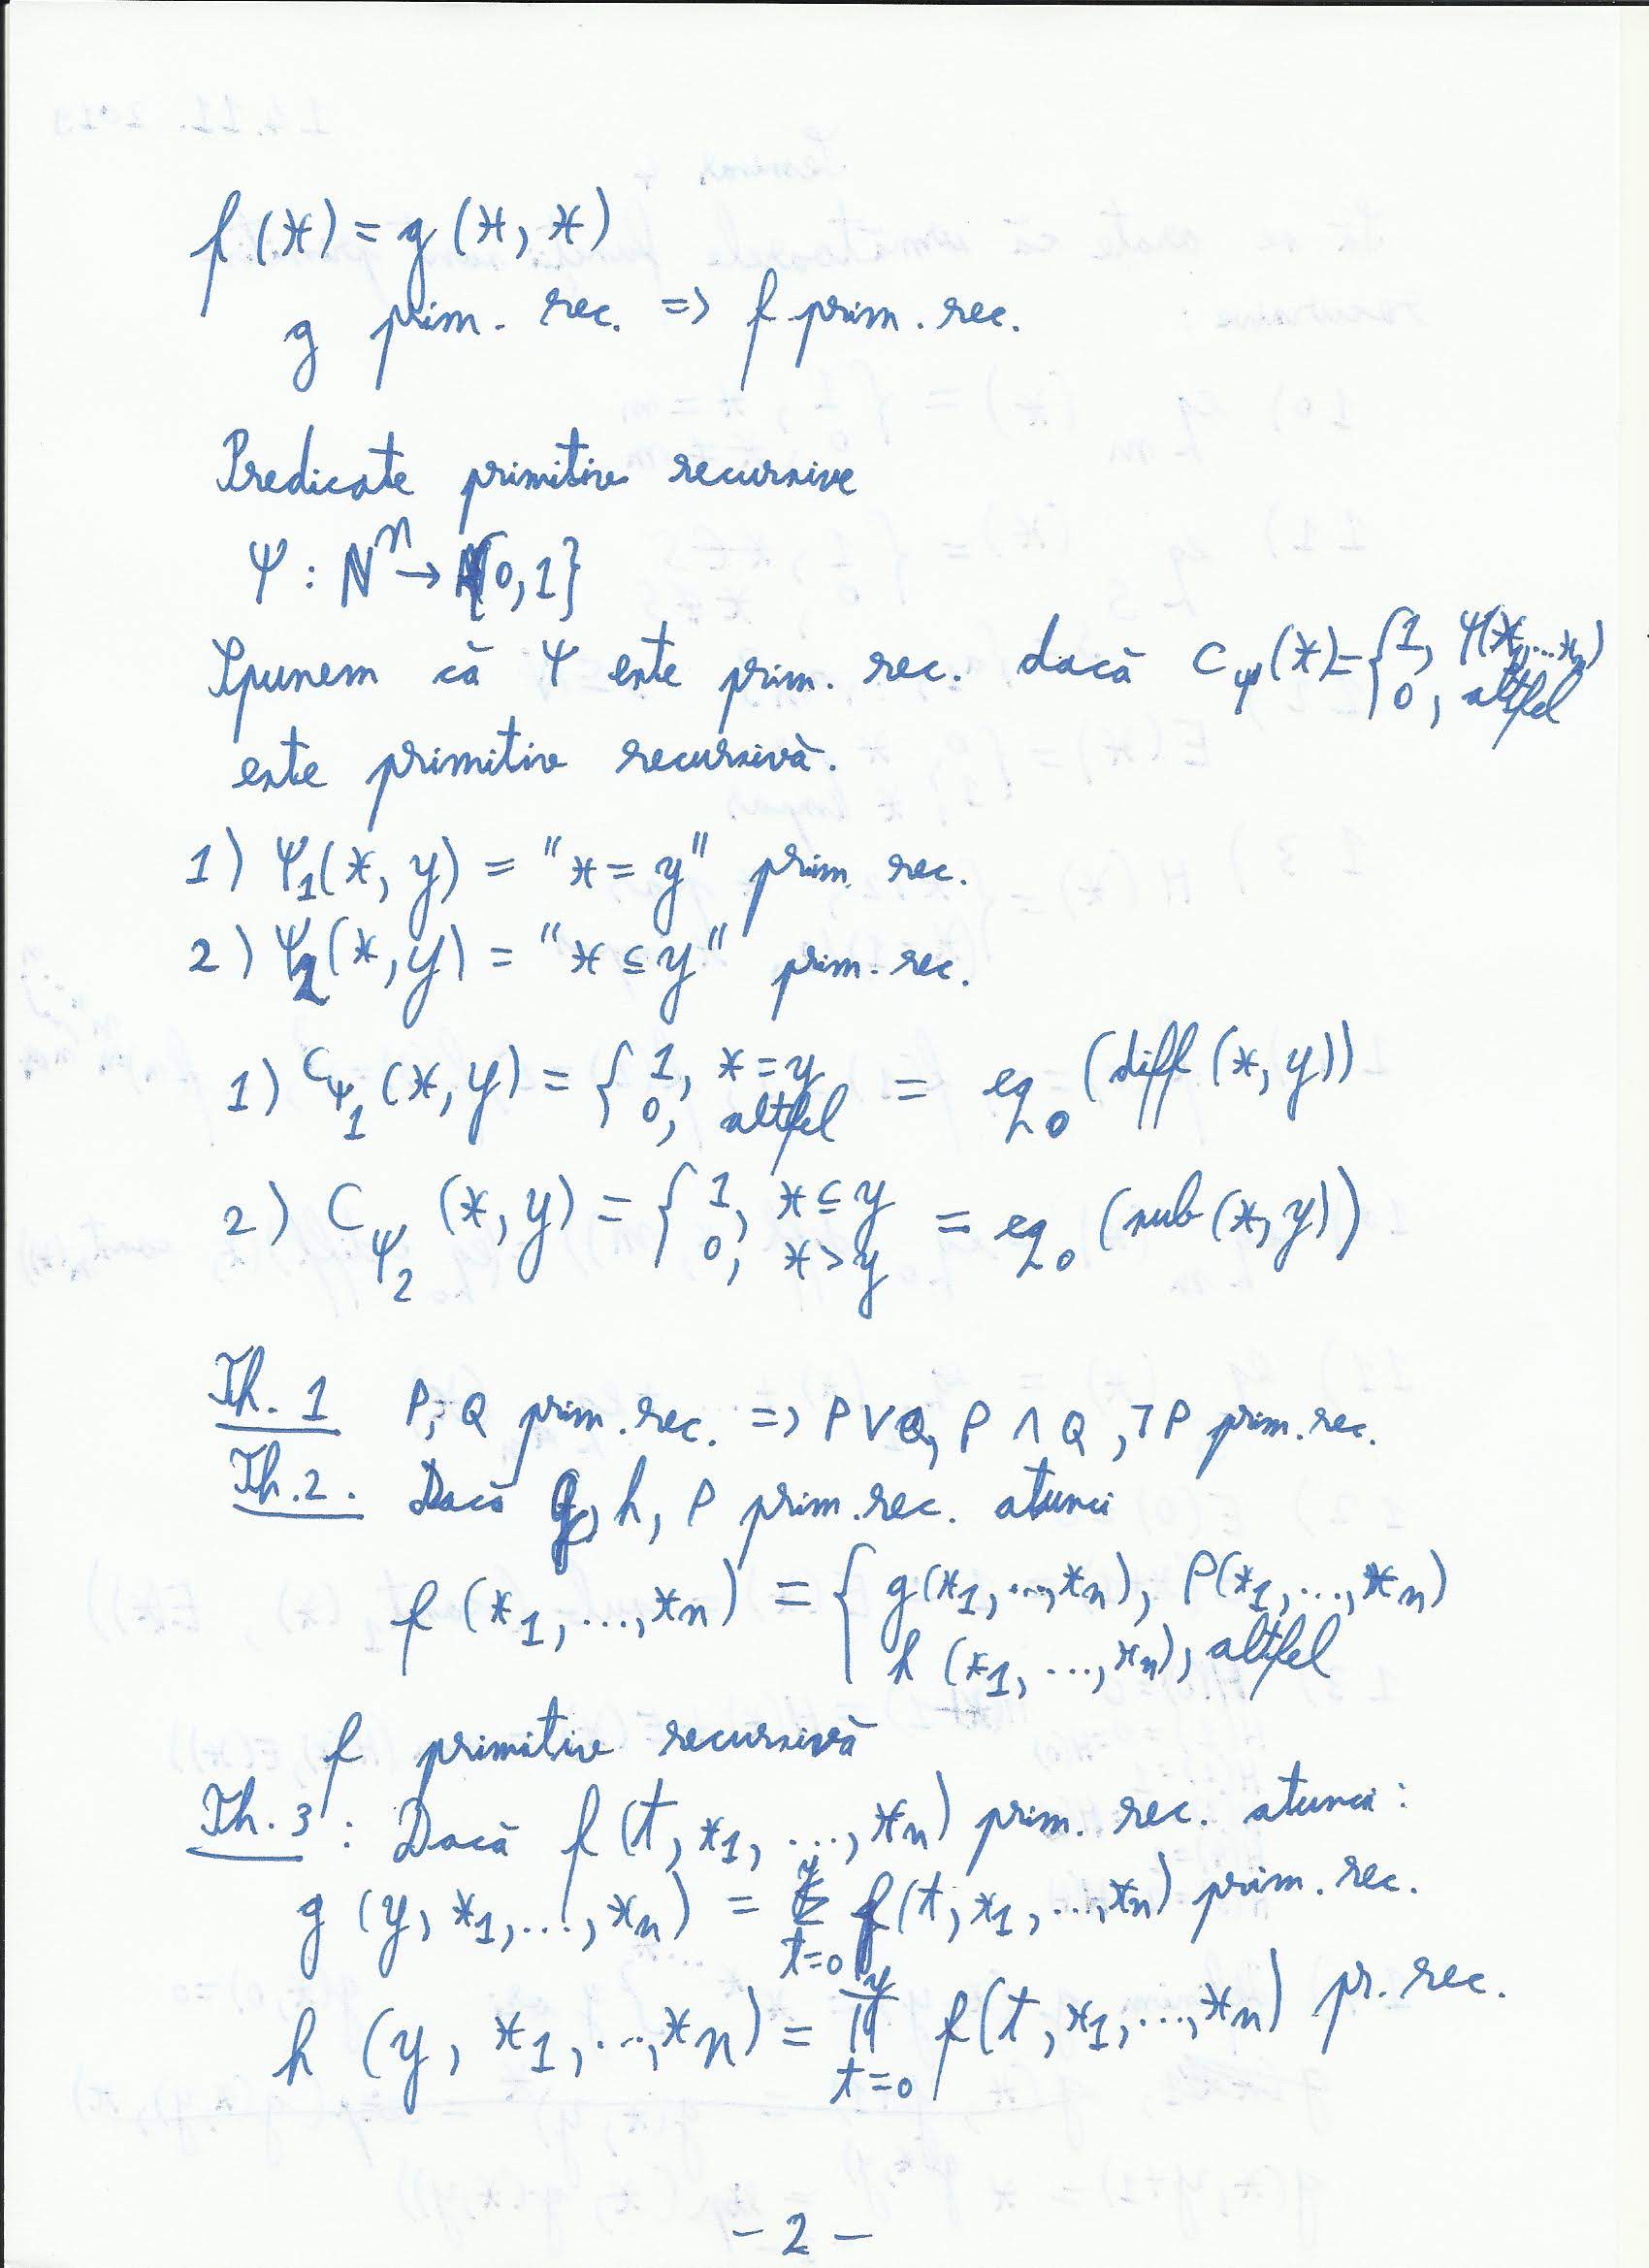 f(x) = g(x, x)
g prim. rec. => f prim. rec.
Predicate primitive recursive
Ψ : N^n → {0,1}
Spunem că Ψ este prim. rec. dacă C_Ψ(x) = { 1, Ψ(x_1, ... x_n)
0, altfel
este primitiv recursivă.
1) Ψ_1(x, y) = "x = y" prim. rec.
2) Ψ_2(x, y) = "x ≤ y" prim. rec.
1) C_Ψ_1 (x, y) = { 1, x = y
0, altfel = eq_0 (diff (x, y))
2) C_Ψ_2 (x, y) = { 1, x ≤ y
0, x > y = eq_0 (sub (x, y))
Th. 1 P, Q prim. rec. => P ∨ Q, P ∧ Q, ¬P prim. rec.
Th. 2. Dacă g, h, P prim. rec. atunci
f (x_1, ..., x_n) = { g(x_1, ..., x_n), P(x_1, ..., x_n)
h (x_1, ..., x_n), altfel
f primitiv recursivă
Th. 3 : Dacă f (t, x_1, ..., x_n) prim. rec. atunci :
g (y, x_1, ..., x_n) = Σ_{t=0}^{y} f(t, x_1, ..., x_n) prim. rec.
h (y, x_1, ..., x_n) = Π_{t=0}^{y} f(t, x_1, ..., x_n) pr. rec.
- 2 -